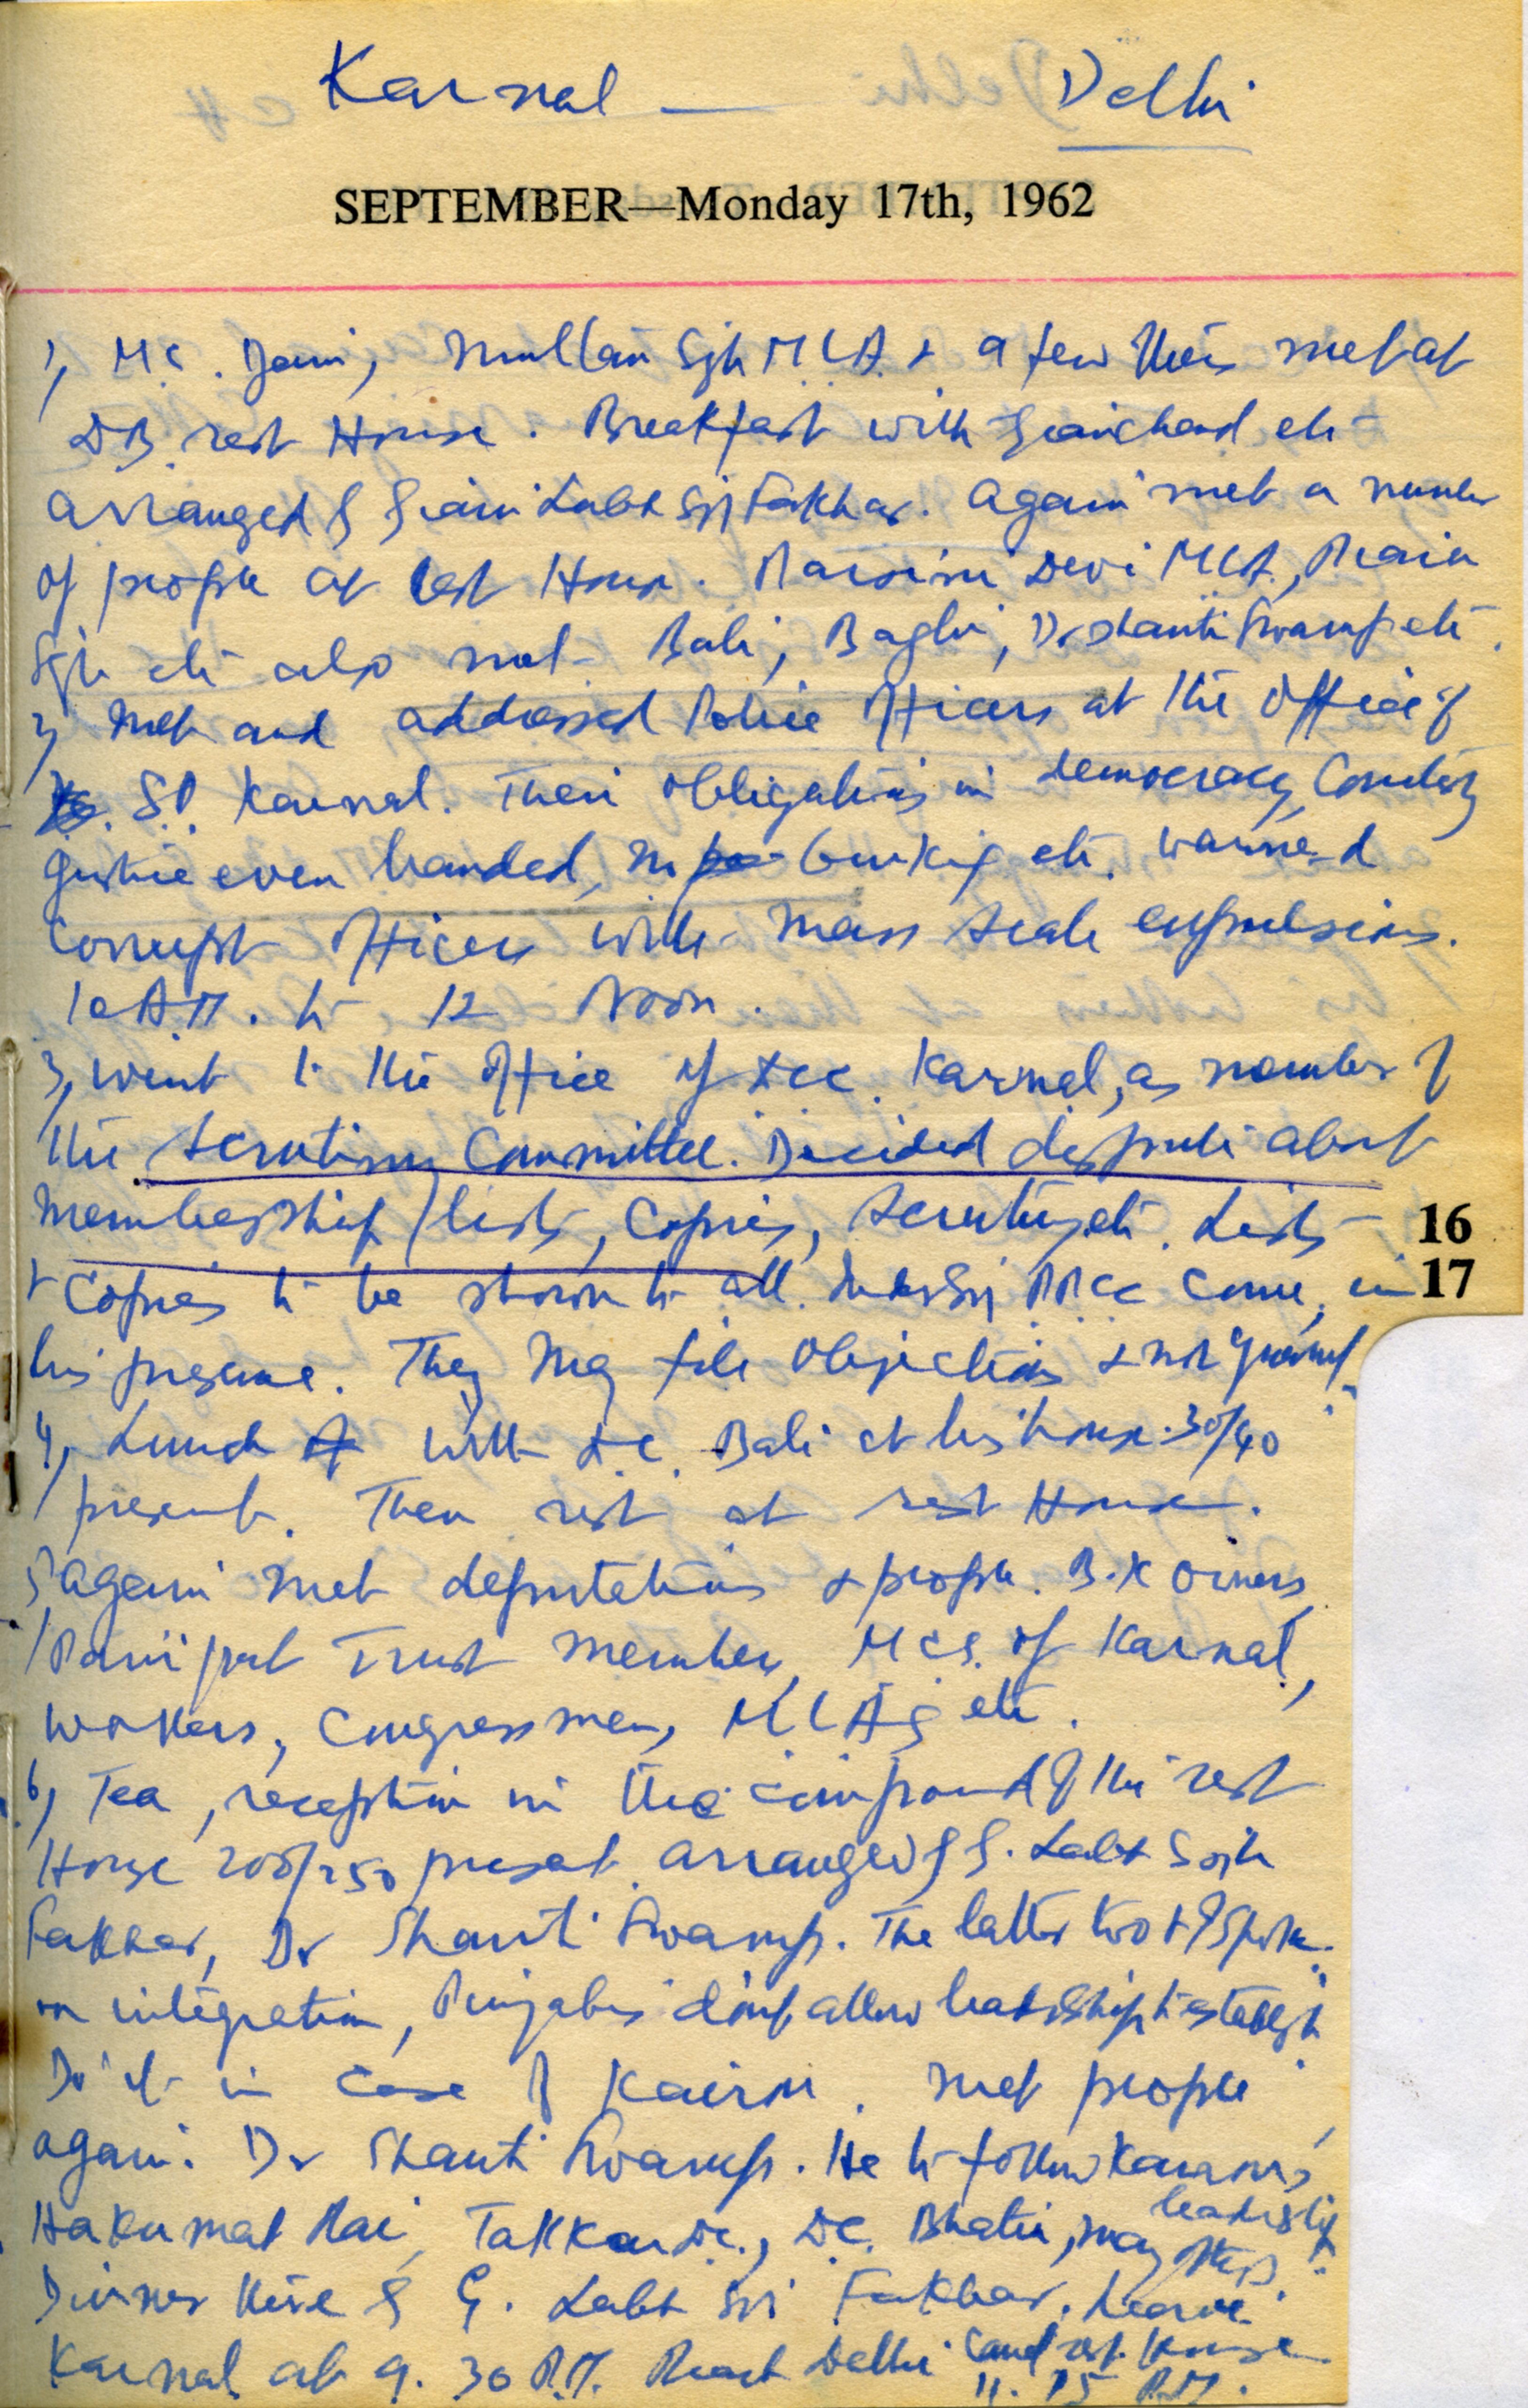 Karnal — Delhi
SEPTEMBER—Monday 17th, 1962
1, M.C. Jain, Multan Sgh M.L.A. & a few others met at
D.B. rest House. Breakfast with Gianchand etc
arranged by Giani Labh Sgh Fakhar. Again met a number
of people at rest House. Devi M.L.A., Piara
Sgh etc also met. Bali, Baghi, Dr Shanti Swarup etc.
2, Met and addressed Police officers at the office of
S.P. Karnal. Their obligations in democracy, Courtesy
justice even handed, no burking etc. Warned
corrupt officers with mass scale expulsions.
10 A.M. to 12 Noon.
3, Went to the office of DCC Karnal, as member of
the Scrutiny Committee. Decided dispute about
membership lists, copies, scrutiny etc. Lists
16
& copies to be shown to all. PPCC come, in
17
his presence. They may file objections & not
4, Lunch with D.C. Bali at his house. 30/40
present. Then rest at rest House.
5, Again met deputations & people. B.K owners,
Panipat Trust members, M.C.s. of Karnal,
Workers, Congressmen, M.L.A,s etc.
6, Tea, reception in the compound of the rest
House 200/250 present. arranged by G. Labh Sgh
Fakhar, Dr Shanti Swarup. The latter two & I spoke
on integration, Punjabis don't allow leadership to establish
Do it in case of Kairon. Met people
again. Dr Shanti Swarup. He to follow Kairon's
leadership.
Hakumat Rai, Takkar D.C., D.C. Bhatia, many others.
Dinner here by G. Labh Sgh Fakhar. Leave
Karnal at 9.30 P.M. Reach Delhi rest House
11.15 P.M.